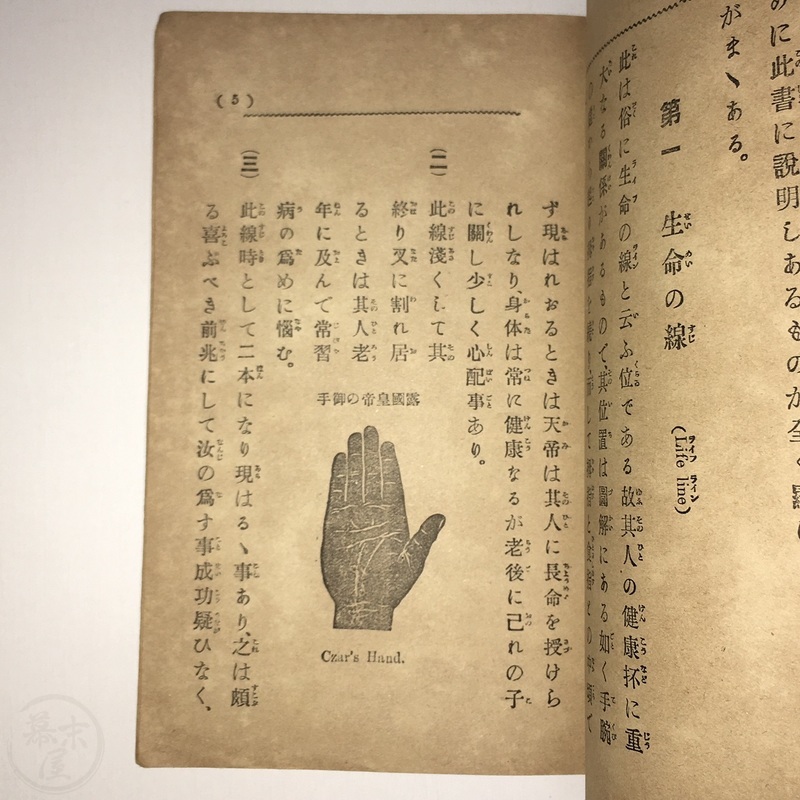 のに此書に說明しあるものが全く
がまゝある。
第一 生命の線 (Life line)
此は俗に生命の線と云ふ位である故其人の健康抔に重
大なる關係があるもので、其位置は圖解にある如く手腕
(5)
ず現はれおるときは天帝は其人に長命を授けら
れしなり、身体は常に健康なるが老後に己れの子
に關し少しく心配事あり。
(二) 此線淺くして其
終り叉に割れ居
るときは其人老
年に及んで常習
病の爲めに惱む。
露國皇帝の御手
Czar's Hand.
(三) 此線時として二本になり現はるゝ事あり、之は頗
る喜ぶべき前兆にして汝の爲す事成功疑ひなく、
幕末屋